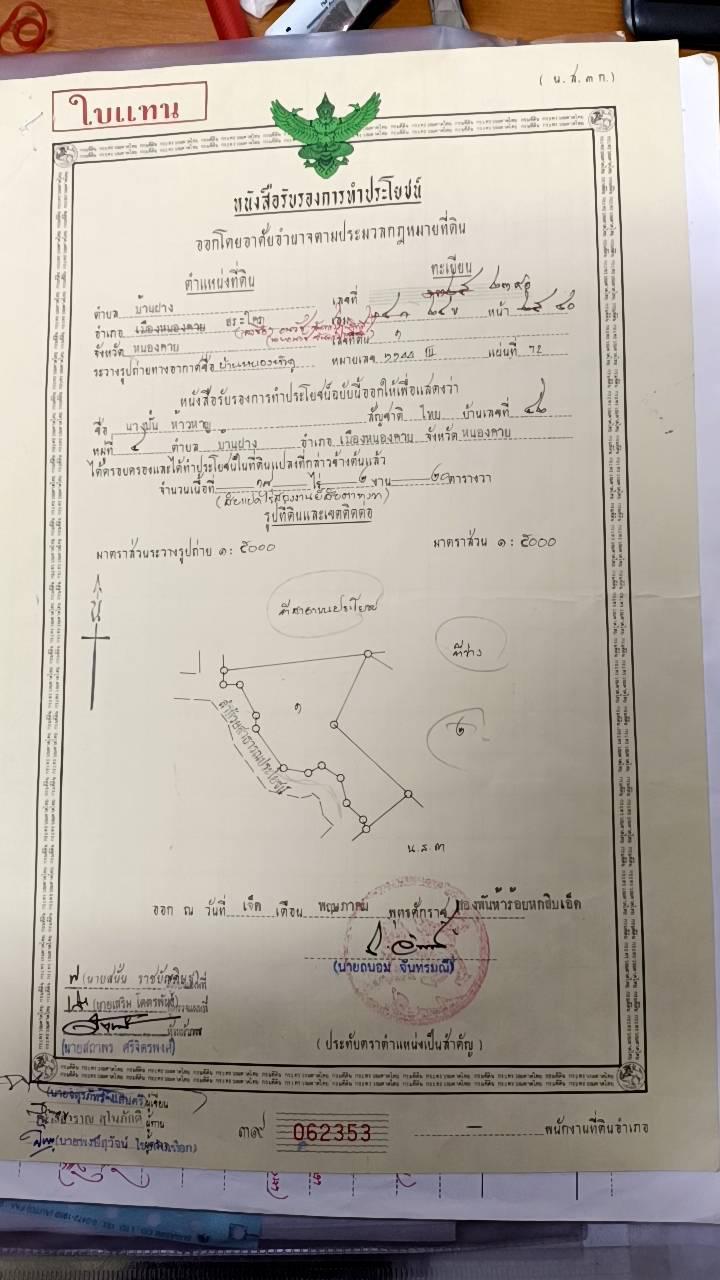 (น.ส.๓ ก.)
ใบแทน
หนังสือรับรองการทำประโยชน์
ออกโดยอาศัยอำนาจตามประมวลกฎหมายที่ดิน
ตำแหน่งที่ดิน ทะเบียน
ตำบล บ้านฝาง เลขที่ ๒๓๙๐
อำเภอ เมืองหนองคาย สระใคร เล่ม ๒๔ ข หน้า ๔๐
จังหวัด หนองคาย เลขที่ดิน ๑
ระวางรูปถ่ายทางอากาศชื่อ หมายเลข III แผ่นที่ 72
หนังสือรับรองการทำประโยชน์ฉบับนี้ออกให้เพื่อแสดงว่า
ชื่อ นางมั่น ห้าวหาญ สัญชาติ ไทย บ้านเลขที่
หมู่ที่ ๔ ตำบล บ้านฝาง อำเภอ เมืองหนองคาย จังหวัด หนองคาย
ได้ครอบครองและได้ทำประโยชน์ในที่ดินแปลงที่กล่าวข้างต้นแล้ว
จำนวนเนื้อที่ ๑๘ ไร่ ๒ งาน ๒๐ ตารางวา
(สิบแปดไร่สองงานยี่สิบตารางวา)
รูปที่ดินและเขตติดต่อ
มาตราส่วนระวางรูปถ่าย ๑ : ๕๐๐๐ มาตราส่วน ๑ : ๕๐๐๐
น
ที่สาธารณประโยชน์
ที่ว่าง
๑
๒
ลำห้วยสาธารณประโยชน์
น.ส.๓
ออก ณ วันที่ เจ็ด เดือน พฤษภาคม พุทธศักราช สองพันห้าร้อยหกสิบเอ็ด
(นายถนอม จันทรมณี)
(นายสนัย ราชบัณฑิษฐ)
(นายเสริม โคตรพันธ์)
(นายสถาพร ศรีจิตรพงศ์)
(ประทับตราตำแหน่งเป็นสำคัญ)
ผู้เขียน
สำราญ สุโนภักดิ์ ผู้ทาน
๓๙ 062353 พนักงานที่ดินอำเภอ